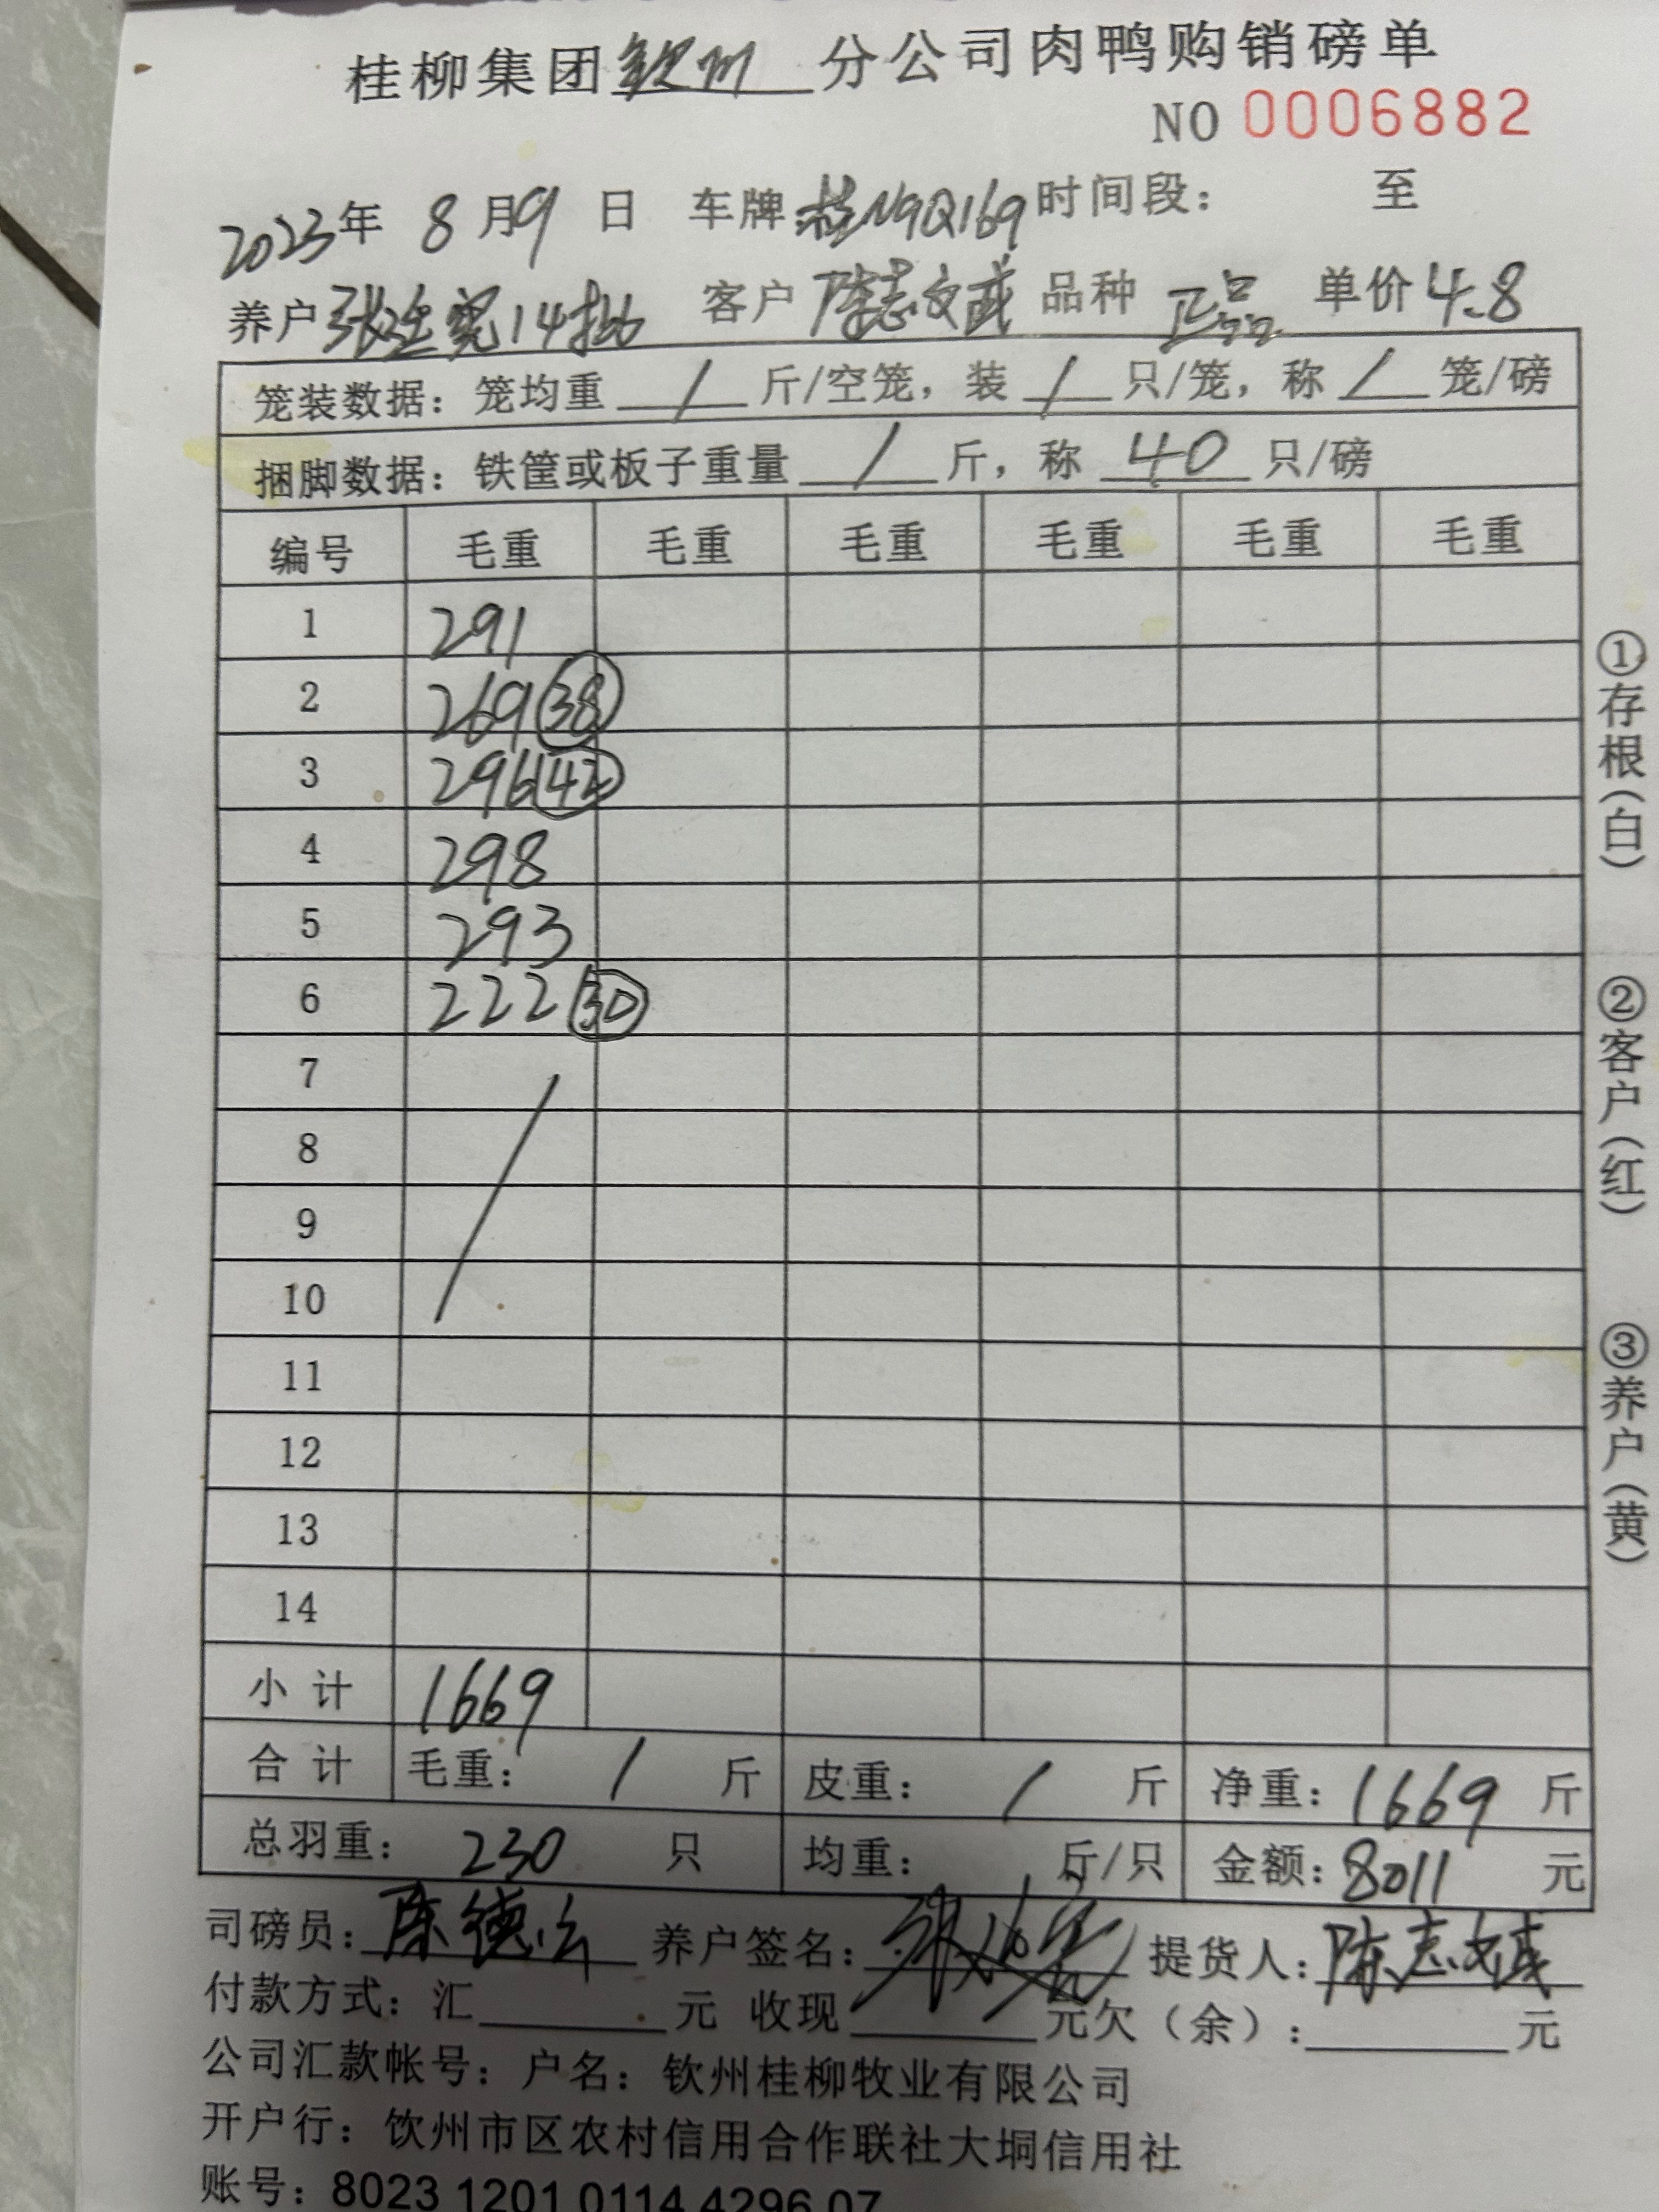 桂柳集团钦州分公司肉鸭购销磅单
NO 0006882
2023年 8月9日 车牌:桂N9Q169 时间段: 至
养户 张 14批 客户 陈志文成 品种 正品 单价 4.8
笼装数据：笼均重 / 斤/空笼，装 / 只/笼，称 / 笼/磅
捆脚数据：铁筐或板子重量 / 斤，称 40 只/磅
编号 毛重 毛重 毛重 毛重 毛重 毛重
1 291
2 269 (38)
3 296 (42)
4 298
5 293
6 222 (30)
7
8
9
10
11
12
13
14
小计 1669
合计 毛重： / 斤 皮重： / 斤 净重：1669 斤
总羽重： 230 只 均重： 斤/只 金额：8011 元
司磅员：陈德 养户签名：张 提货人：陈志文成
付款方式：汇 元 收现 元欠（余）： 元
公司汇款帐号：户名：钦州桂柳牧业有限公司
开户行：饮州市区农村信用合作联社大垌信用社
账号：8023 1201 0114 4296 07
①存根（白）
②客户（红）
③养户（黄）